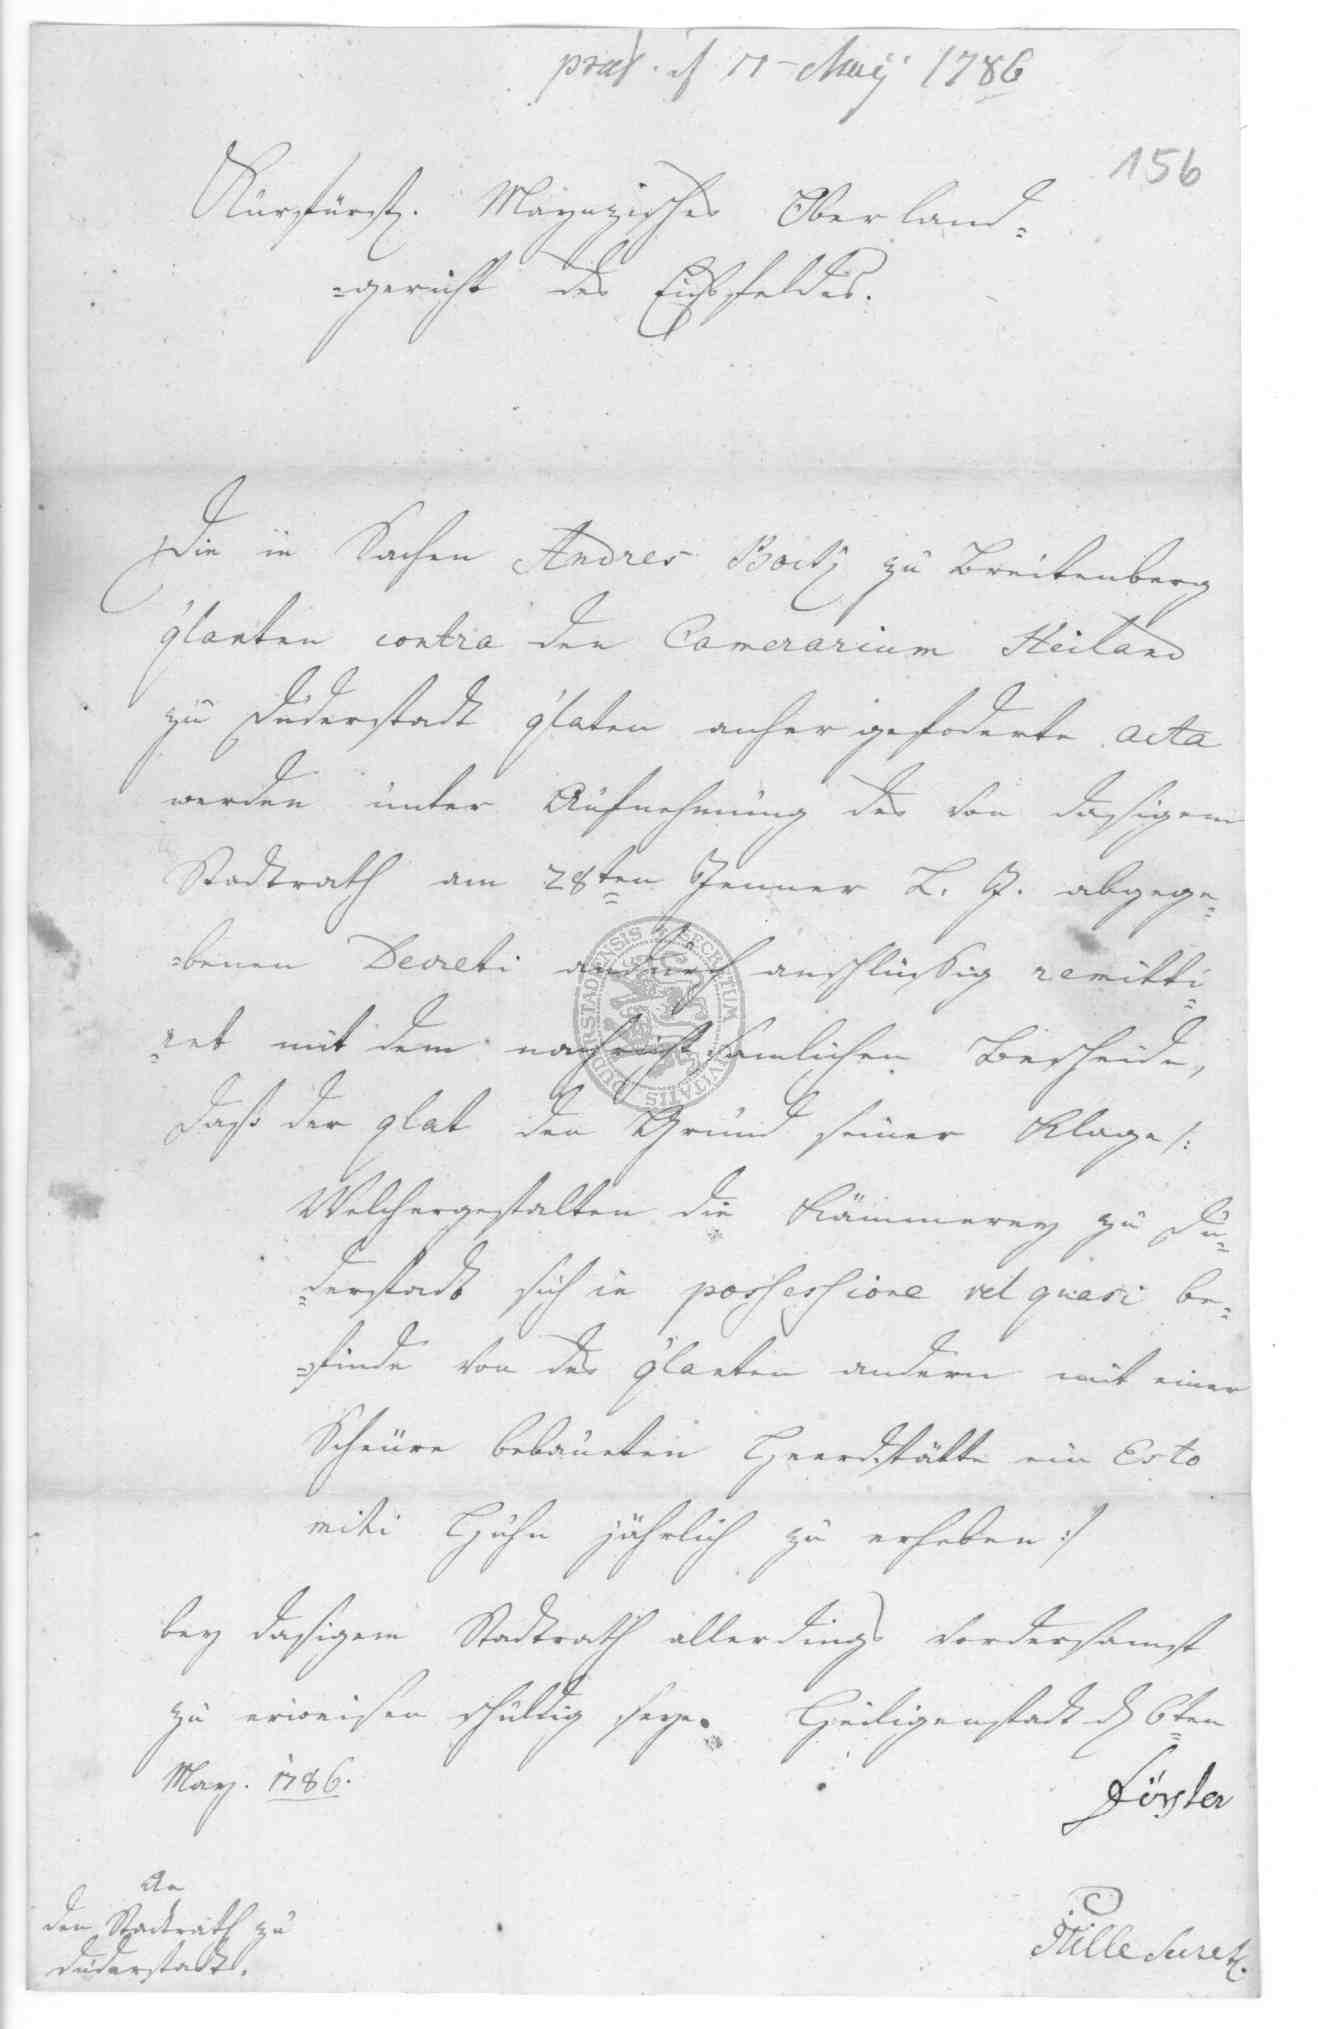 præs. d 17 May 1786
156
Kurfürstl. Maynzisches Oberland=
=gericht des Eichsfeldes.
Die in Sachen Andres Bocky zu Breitenberg
qlanten contra den Camerarium Heiland
zu Duderstadt qlaten anher gefoderte acta
werden unter Aufnehmung des von dasigem
Stadtrath am 28ten Jenner L. J. abgege=
=benen Decreti andurch anschlüssig remitti=
=ret mit dem nachrichtsamlichen Bescheide,
daß der qlat den Grund seiner Klage /:
Welchergestalten die Kämmerey zu Du=
=derstadt sich in possessione vel quasi be=
=finde von des qlanten andern mit einer
Scheüre bebaueten Heerdstätte ein Esto
mihi Huhn jährlich zu erheben :/
bey dasigem Stadtrath allerdings vordersamst
zu erweisen schuldig seye. Heiligenstadt d 6ten
May. 1786.
Förster
An
den Stadtrath zu
Duderstadt.
Hille Secret.
SECRETUM CIVITATIS DUDERSTADENSIS